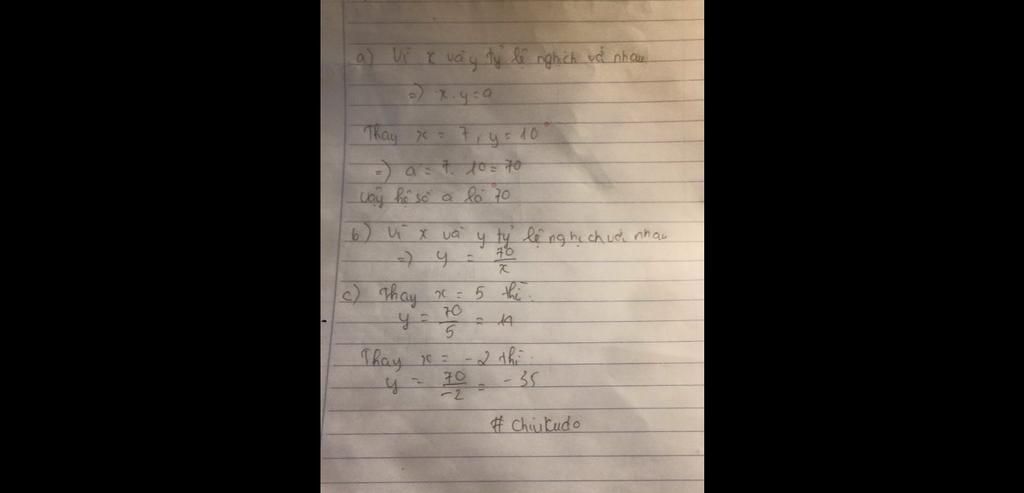 a) Vì x và y tỷ lệ nghịch với nhau
=> x.y=a
Thay x = 7, y = 10
=> a = 7. 10 = 70
vậy hệ số a là 70
b) Vì x và y tỷ lệ nghịch với nhau
=> y = 70/x
c) Thay x = 5 thì:
y = 70/5 = 14
Thay x = -2 thì:
y = 70/-2 = -35
# Chiikudo